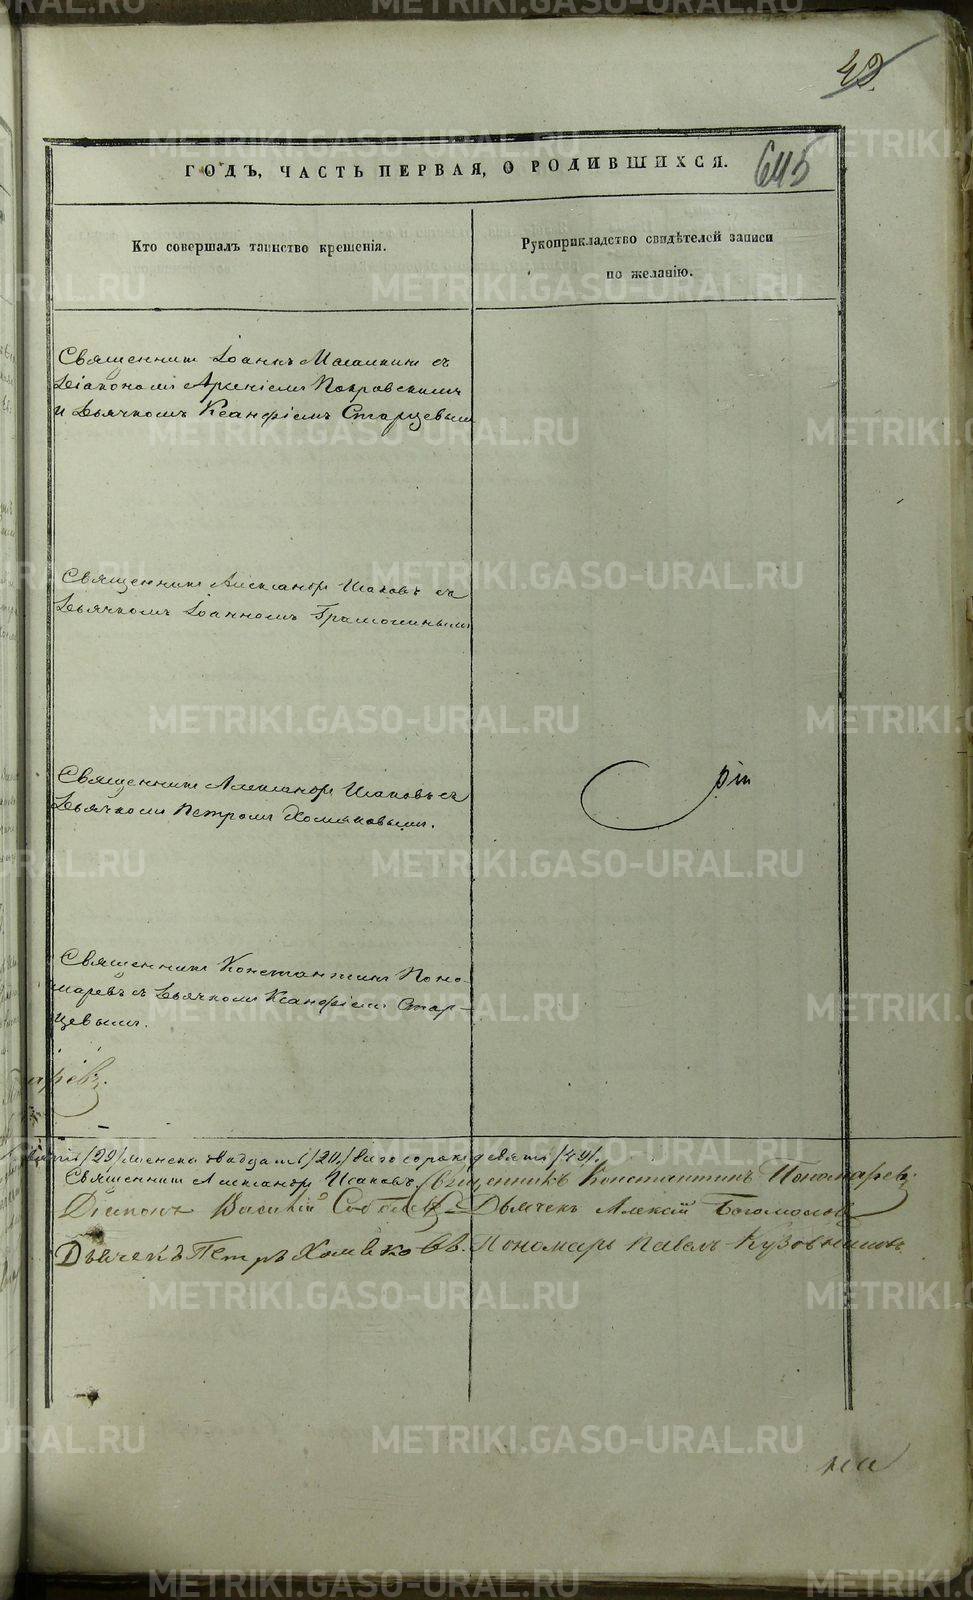 42
ГОДЪ, ЧАСТЬ ПЕРВАЯ, О РОДИВШИХСЯ.
645
Кто совершалъ таинство крещенія.
Рукоприкладство свидѣтелей записи
по желанію.
Священникъ Іоаннъ съ
Діакономъ Арсеніемъ Покровскимъ
и Дьячкомъ Ксанфіемъ Старцевымъ
Священникъ Александръ Исаковъ съ
Дьячкомъ Іоанномъ Грамотинымъ
Священникъ Александръ Исаковъ съ
Дьячкомъ Петромъ Хомяковымъ.
Священникъ Константинъ Поно-
маревъ съ Дьячкомъ Ксанфіемъ Стар-
цевымъ.
/29/ женска двадцать /20/ сорокъ девять /49/.
Священникъ Александръ Исаковъ Священникъ Константинъ Пономаревъ
Діаконъ Василій Дьячекъ Алексій Богомоловъ
Дьячекъ Петръ Хомяковъ. Пономарь Павелъ Кузовниковъ
METRIKI.GASO-URAL.RU